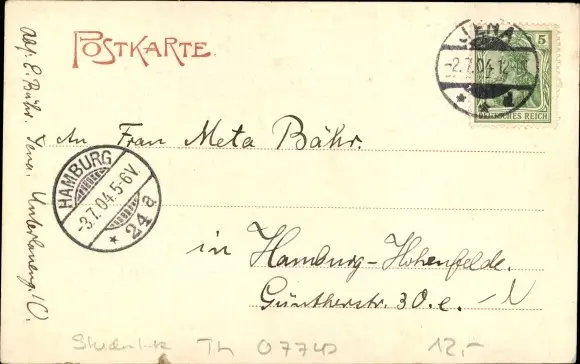 POSTKARTE
JENA
-2.7.04.12
5
DEUTSCHES REICH
Abs. E. Bähr. Jena.
An Frau Meta Bähr.
HAMBURG
-3.7.04.5-6V.
* 24a
in Hamburg-Hohenfelde.
Güntherstr. 30.e. - N
Th 07740 12,-